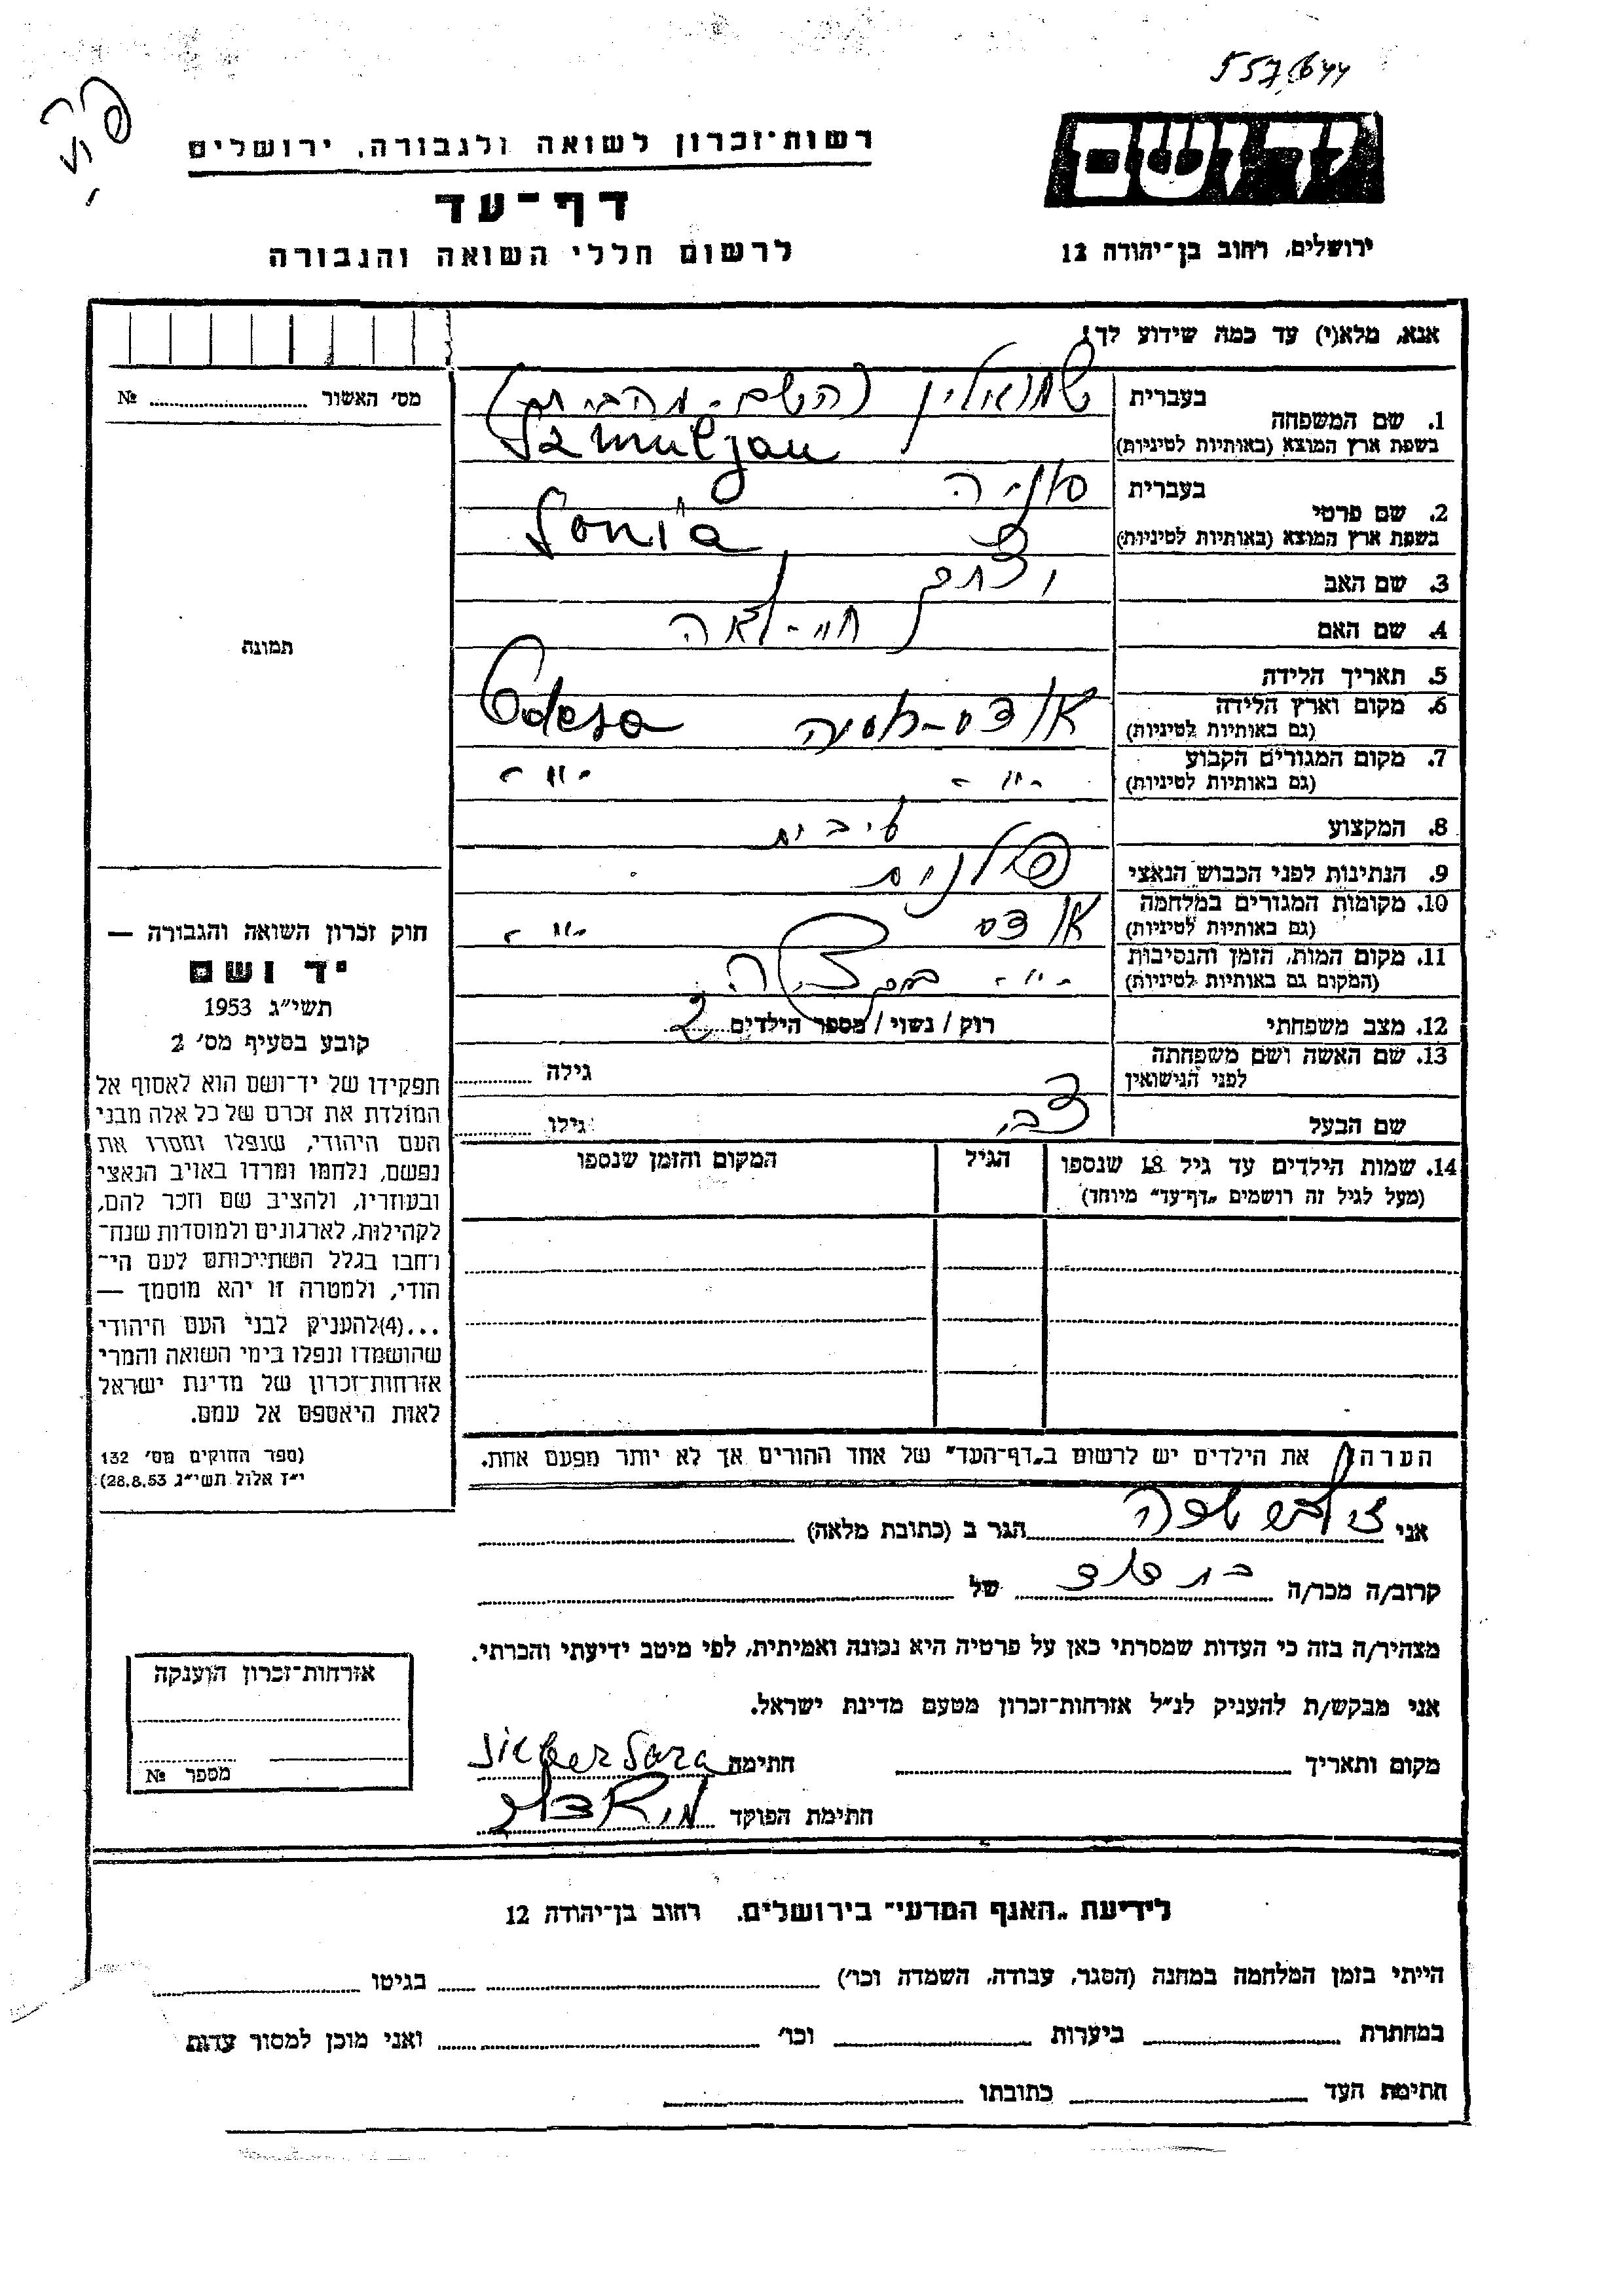 557644
רשות־זכרון לשואה ולגבורה, ירושלים
דף־עד
לרשום חללי השואה והגבורה
יד ושם
ירושלים, רחוב בן־יהודה 12
אנא, מלא(י) עד כמה שידוע לך!
מס׳ האשור № 
תמונה
1. שם המשפחה
בעברית
בשפת ארץ המוצא (באותיות לטיניות)
2. שם פרטי
בעברית סוניה
בשפת ארץ המוצא (באותיות לטיניות) Sonia
3. שם האב
4. שם האם חיי-לאה
5. תאריך הלידה
6. מקום וארץ הלידה אודס-רוסיה Odesa
(גם באותיות לטיניות)
7. מקום המגורים הקבוע -"- -"-
(גם באותיות לטיניות)
8. המקצוע
9. הנתינות לפני הכבוש הנאצי
10. מקומות המגורים במלחמה אודס -"-
(גם באותיות לטיניות)
11. מקום המות, הזמן והנסיבות -"-
(המקום גם באותיות לטיניות)
12. מצב משפחתי רוק / נשוי / מספר הילדים 2
13. שם האשה ושם משפחתה
לפני הנישואין גילה
שם הבעל גילו
14. שמות הילדים עד גיל 18 שנספו
(מעל לגיל זה רושמים „דף־עד״ מיוחד)
הגיל
המקום והזמן שנספו
הערה את הילדים יש לרשום ב„דף־העד״ של אחד ההורים אך לא יותר מפעם אחת.
חוק זכרון השואה והגבורה —
יד ושם
תשי״ג 1953
קובע בסעיף מס׳ 2
תפקידו של יד־ושם הוא לאסוף אל
המולדת את זכרם של כל אלה מבני
העם היהודי, שנפלו ומסרו את
נפשם, נלחמו ומרדו באויב הנאצי
ובעוזריו, ולהציב שם וזכר להם,
לקהילות, לארגונים ולמוסדות שנח־
רחבו בגלל השתייכותם לעם הי־
הודי, ולמטרה זו יהא מוסמך —
...(4)להעניק לבני העם היהודי
שהושמדו ונפלו בימי השואה והמרי
אזרחות־זכרון של מדינת ישראל
לאות היאספם אל עמם.
(ספר החוקים מס׳ 132
י״ז אלול תשי״ג 28.8.53)
אני הגר ב (כתובת מלאה)
קרוב/ה מכר/ה של
מצהיר/ה בזה כי העדות שמסרתי כאן על פרטיה היא נכונה ואמיתית, לפי מיטב ידיעתי והכרתי.
אני מבקש/ת להעניק לנ״ל אזרחות־זכרון מטעם מדינת ישראל.
מקום ותאריך חתימה Sara
חתימת הפוקד
אזרחות־זכרון הוענקה
מספר №
לידיעת „האגף המדעי״ בירושלים. רחוב בן־יהודה 12
הייתי בזמן המלחמה במחנה (הסגר, עבודה, השמדה וכו׳) בגיטו
במחתרת ביערות וכו׳ ואני מוכן למסור עדות
חתימת העד כתובתו